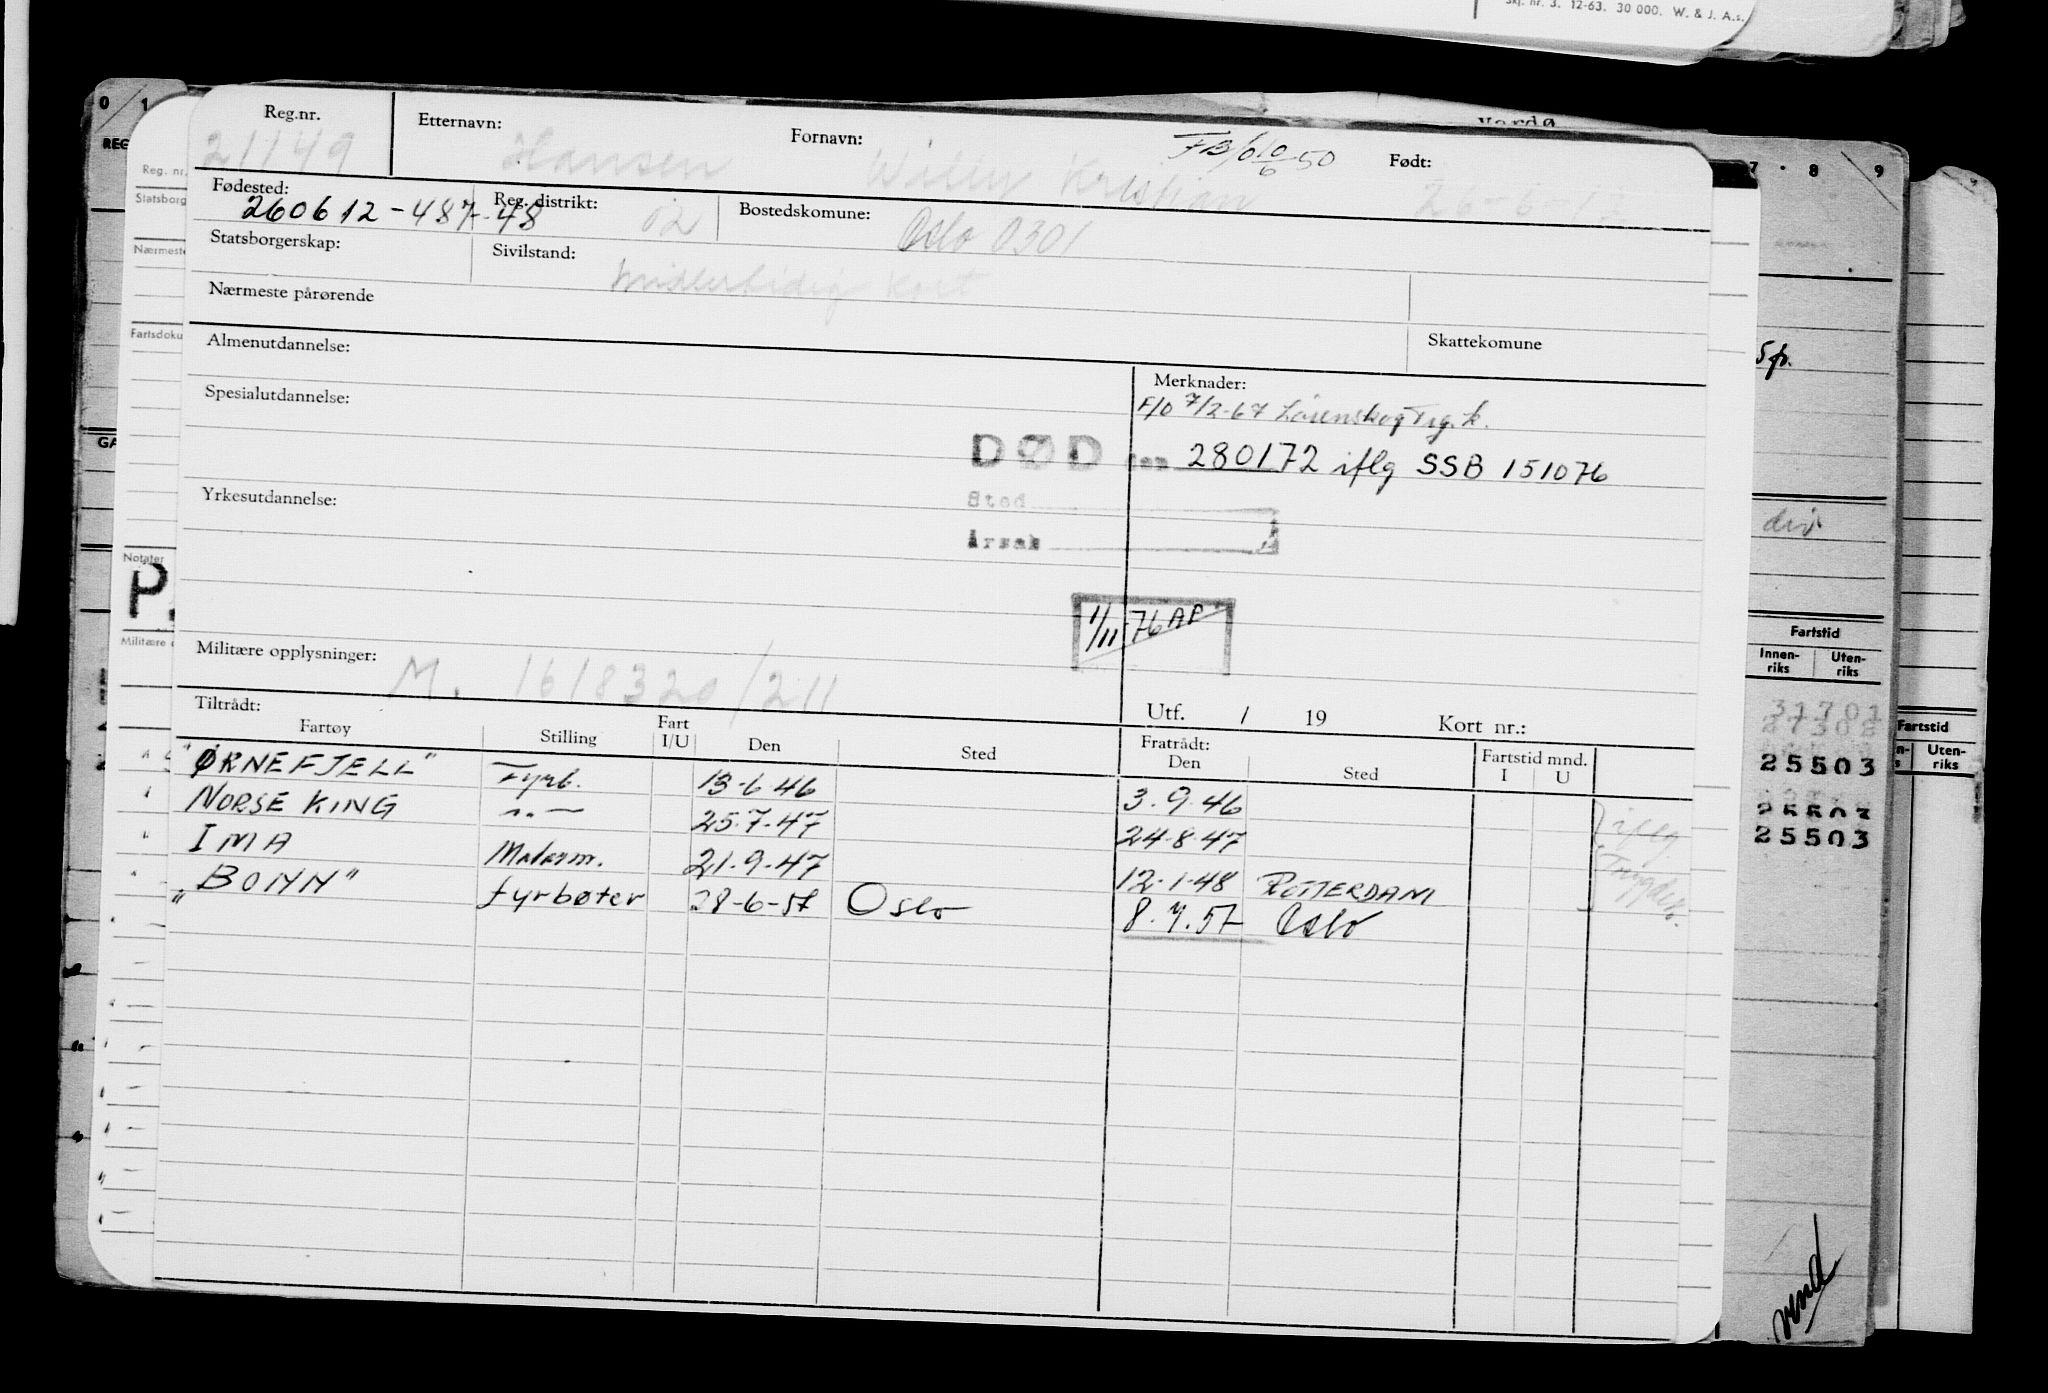 Skj. nr. 3. 12-63. 30 000. W. & J. A.s.
0 1
Vardø
7 · 8 9
Reg.nr. Etternavn: Fornavn: Født:
21149 Hansen Willy Kristian 26-6-12
50
Fødested: Reg. distrikt: Bostedskomune:
260612-487-48 02 Oslo 0301
Statsborgerskap: Sivilstand:
Midlertidig Kort
Nærmeste pårørende
Almenutdannelse: Skattekomune
Spesialutdannelse: Merknader:
F/O 7/2-67 Lørenskog Trg.k.
DØD den 280172 iflg SSB 151076
Sted
Yrkesutdannelse:
Årsak
1/11-76 AP
Militære opplysninger: M. 1618320/211
Tiltrådt: Utf. / 19 Kort nr.:
Fartøy Stilling Fart I/U Den Sted Fratrådt: Den Sted Fartstid mnd. I U
"ØRNEFJELL" Fyrb. 13-6-46 3.9.46
NORSE KING —"— 25.7.47 24-8-47 iflg
IMA Matrsm. 21.9.47 12-1-48 ROTTERDAM Trygdek.
"BONN" fyrbøter 28-6-57 Oslo 8.7.57 Oslo
REG
Reg. nr.
Statsborg
Nærmeste
Fartsdoku
GA
Notater
P.
Militære
5p.
div
Fartstid
Innen-riks Uten-riks
31701
27302
25503
25503
25503
Fartstid
Uten-riks
vend